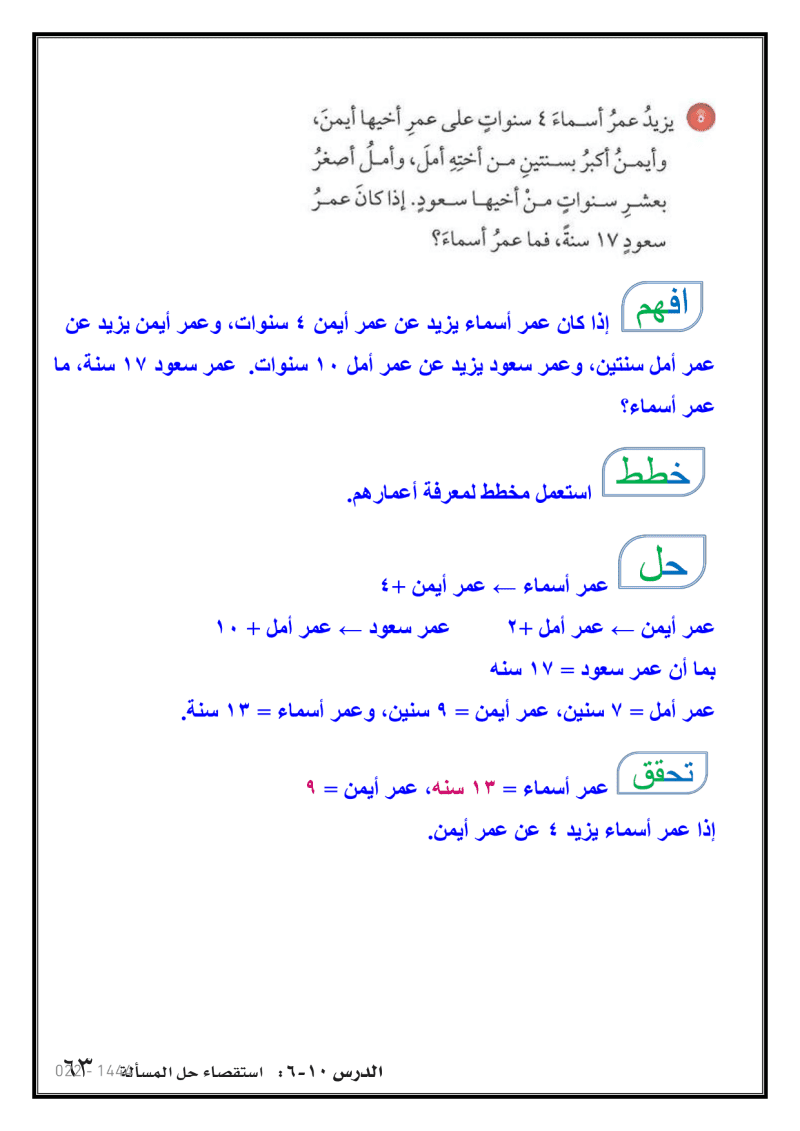 ٥ يزيدُ عمرُ أسـماءَ ٤ سنواتٍ على عمرِ أخيها أيمنَ،
وأيمـنُ أكبرُ بسـنتينِ مـن أختِهِ أملَ، وأمـلُ أصغرُ
بعشـرِ سـنواتٍ منْ أخيهـا سـعودٍ. إذا كانَ عمـرُ
سعودٍ ١٧ سنةً، فما عمرُ أسماءَ؟
افهم إذا كان عمر أسماء يزيد عن عمر أيمن ٤ سنوات، وعمر أيمن يزيد عن
عمر أمل سنتين، وعمر سعود يزيد عن عمر أمل ١٠ سنوات. عمر سعود ١٧ سنة، ما
عمر أسماء؟
خطط استعمل مخطط لمعرفة أعمارهم.
حل عمر أسماء ← عمر أيمن +٤
عمر أيمن ← عمر أمل +٢ عمر سعود ← عمر أمل + ١٠
بما أن عمر سعود = ١٧ سنه
عمر أمل = ٧ سنين، عمر أيمن = ٩ سنين، وعمر أسماء = ١٣ سنة.
تحقق عمر أسماء = ١٣ سنه، عمر أيمن = ٩
إذا عمر أسماء يزيد ٤ عن عمر أيمن.
الدرس ١٠-٦ : استقصاء حل المسألة ٦٣
022 - 1444